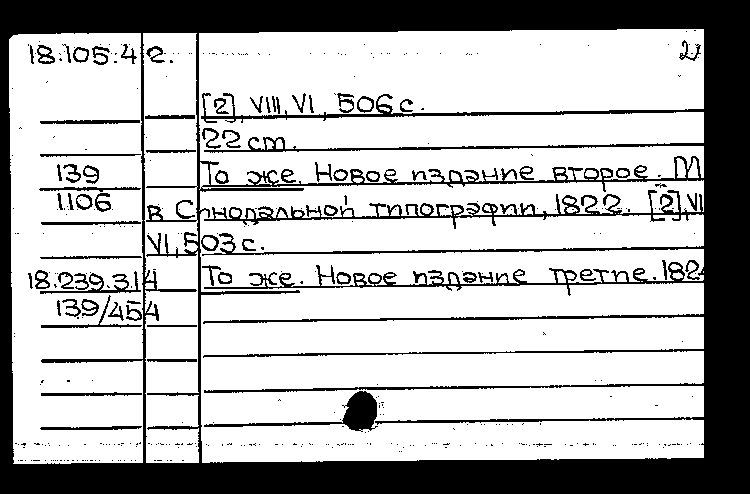 18.105.4 2.
[2], VIII, VI, 506 с.
22 cm.
139 То же. Новое издание второе. М
1106 в Синодальной типографии, 1822. [2], VI
VI, 503 с.
18.239.314 То же. Новое издание третие. 182
139/454